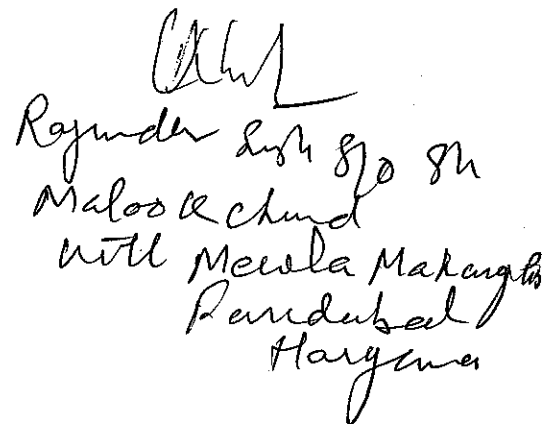 Rajinder Singh S/o Sh
Malook Chand
Vill Mewla Maharajpur
Faridabad
Haryana